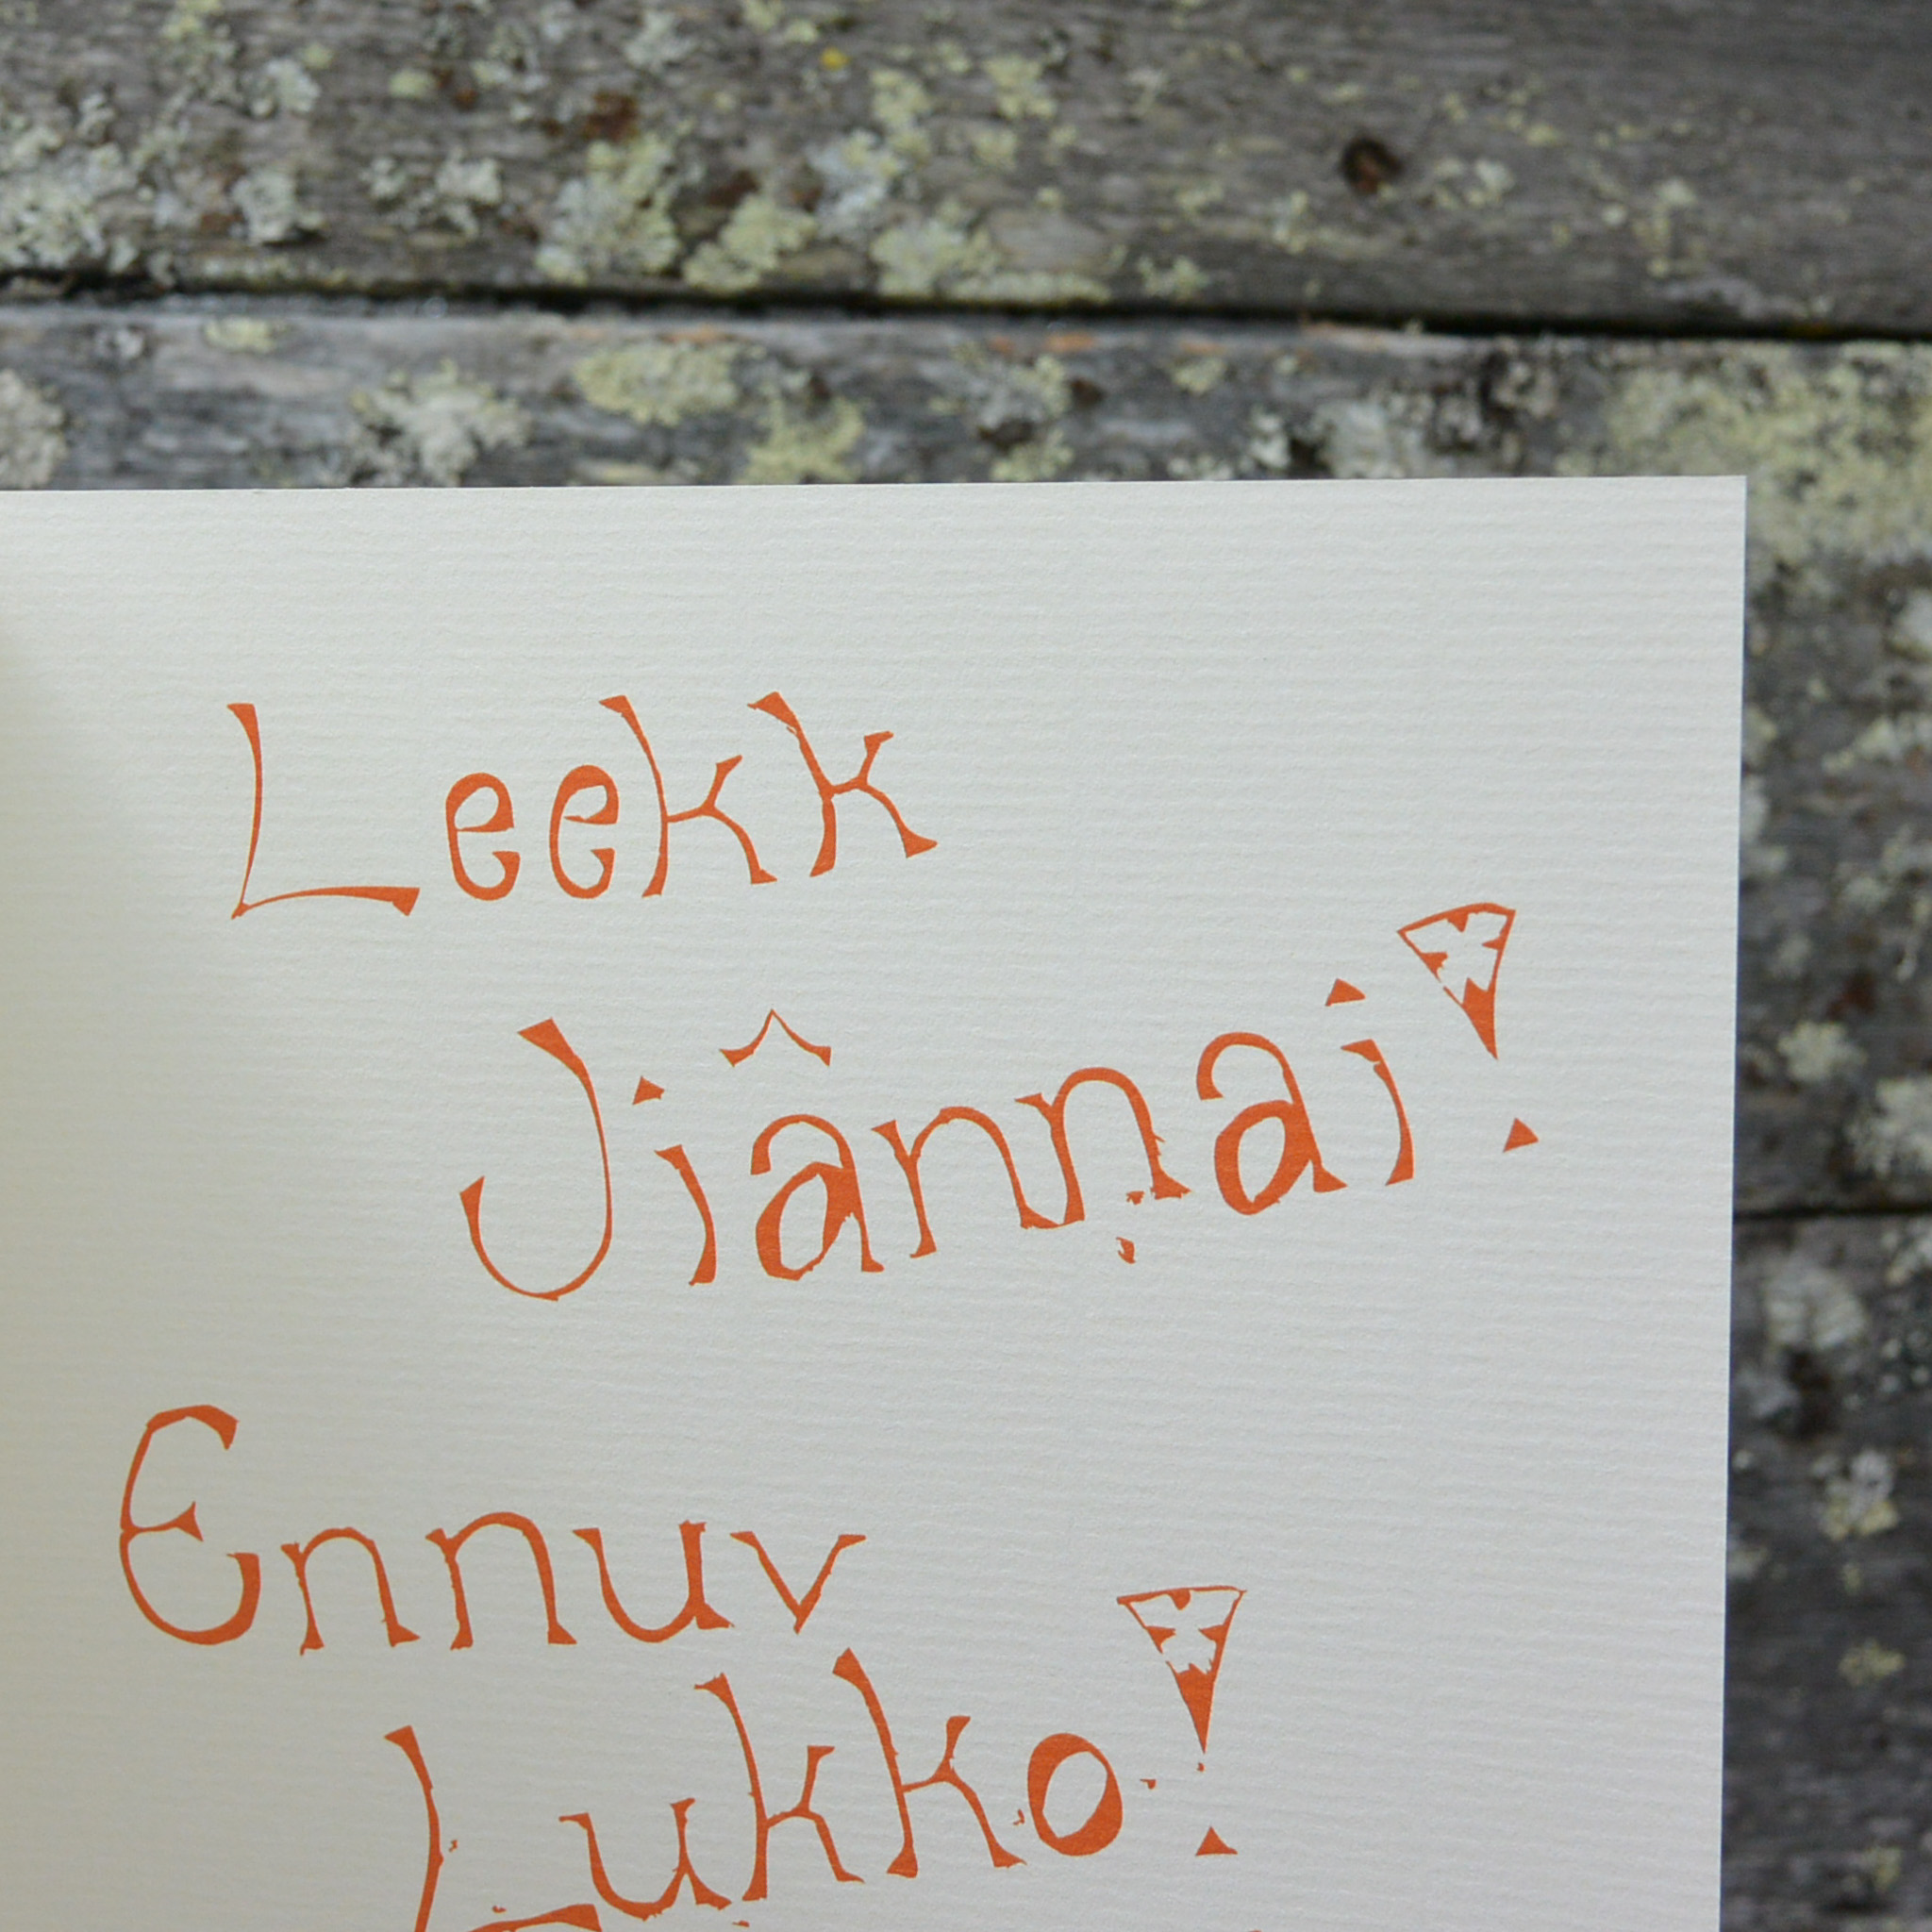 Leekk
Jiânṇai!
Ennuv
Lukko!